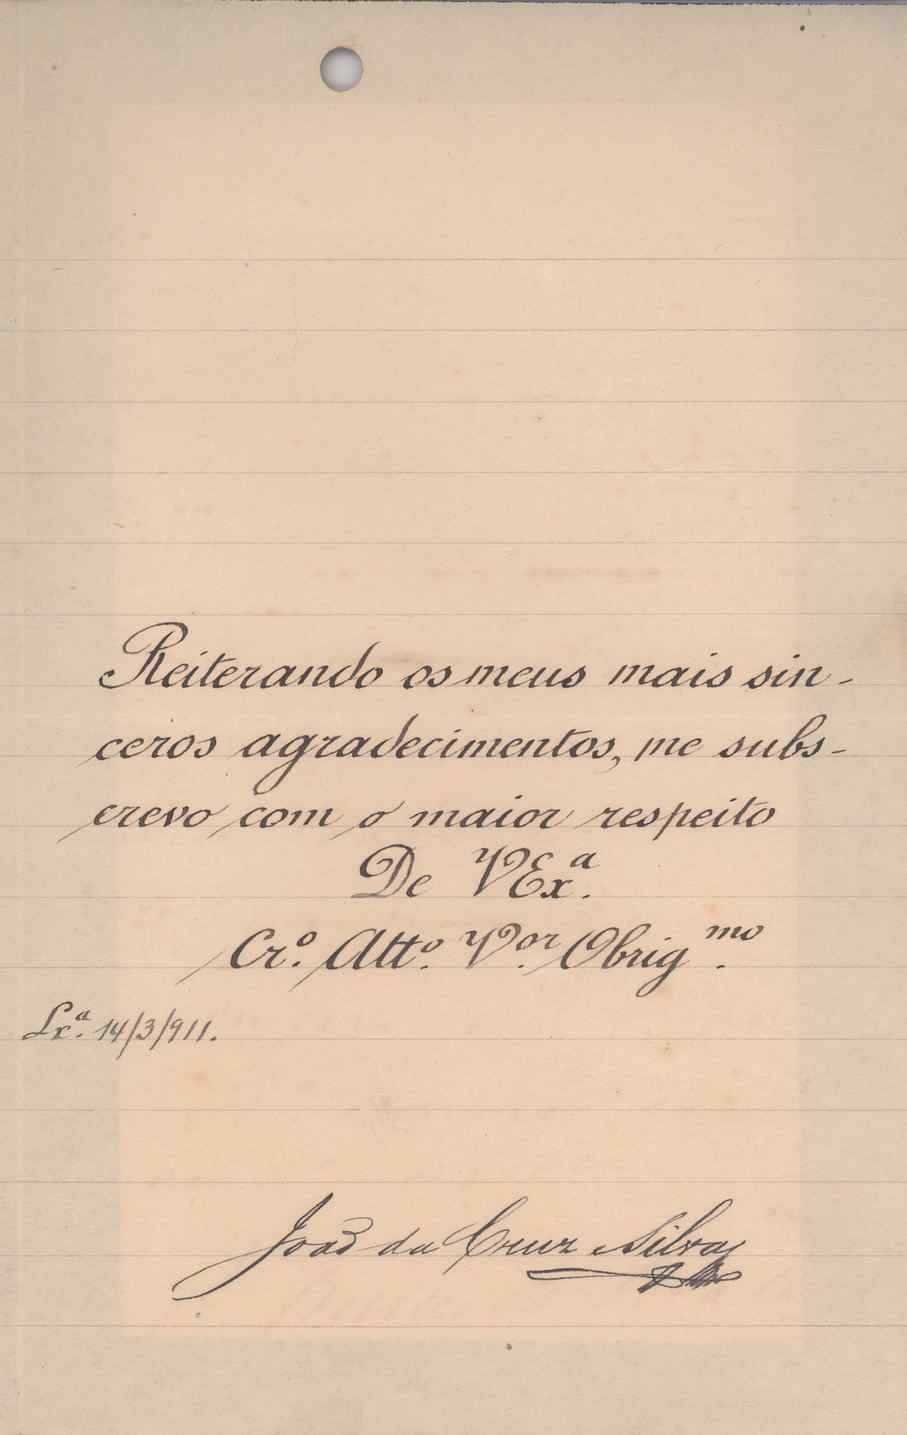 Reiterando os meus mais sin-
ceros agradecimentos, me subs-
crevo com o maior respeito
De VExª.
Crº. Attº. Vor. Obrigmo.
Lxª. 14/3/911.
João da Cruz Silva